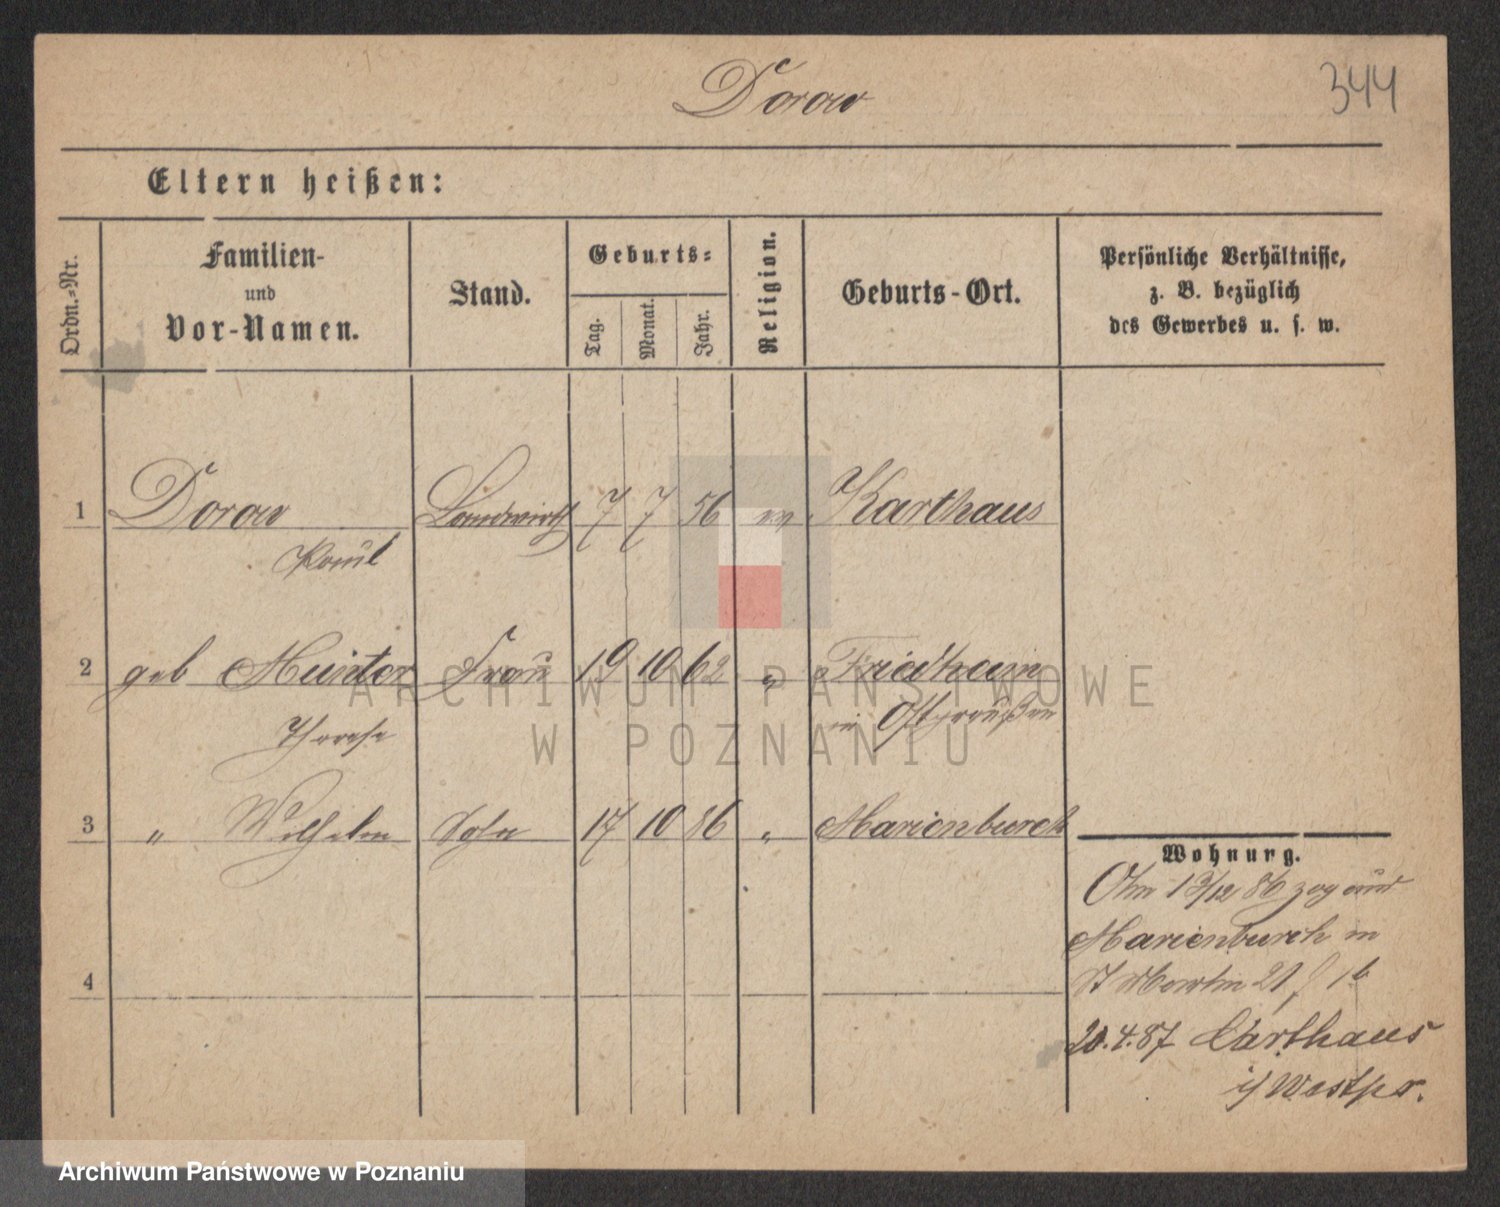 Dorow
344
Eltern heißen:
Ordn.-Nr.
Familien-
und
Vor-Namen.
Stand.
Geburts-
Tag.
Monat.
Jahr.
Religion.
Geburts-Ort.
Persönliche Verhältnisse,
z. B. bezüglich
des Gewerbes u. s. w.
1 Dorow Landwirth 7 7 56 ev Karthaus
Paul
2 geb Frau 19 10 62 " Friedheim
in Ostpreußen
Therese
3 " Wilhelm Sohn 17 10 86 " Marienburch
4
Wohnung.
13/12 86 zog aus
Marienburch in
St Martin 21
20.4.87 Carthaus
i/ Westpr.
ARCHIWUM PAŃSTWOWE
W POZNANIU
Archiwum Państwowe w Poznaniu